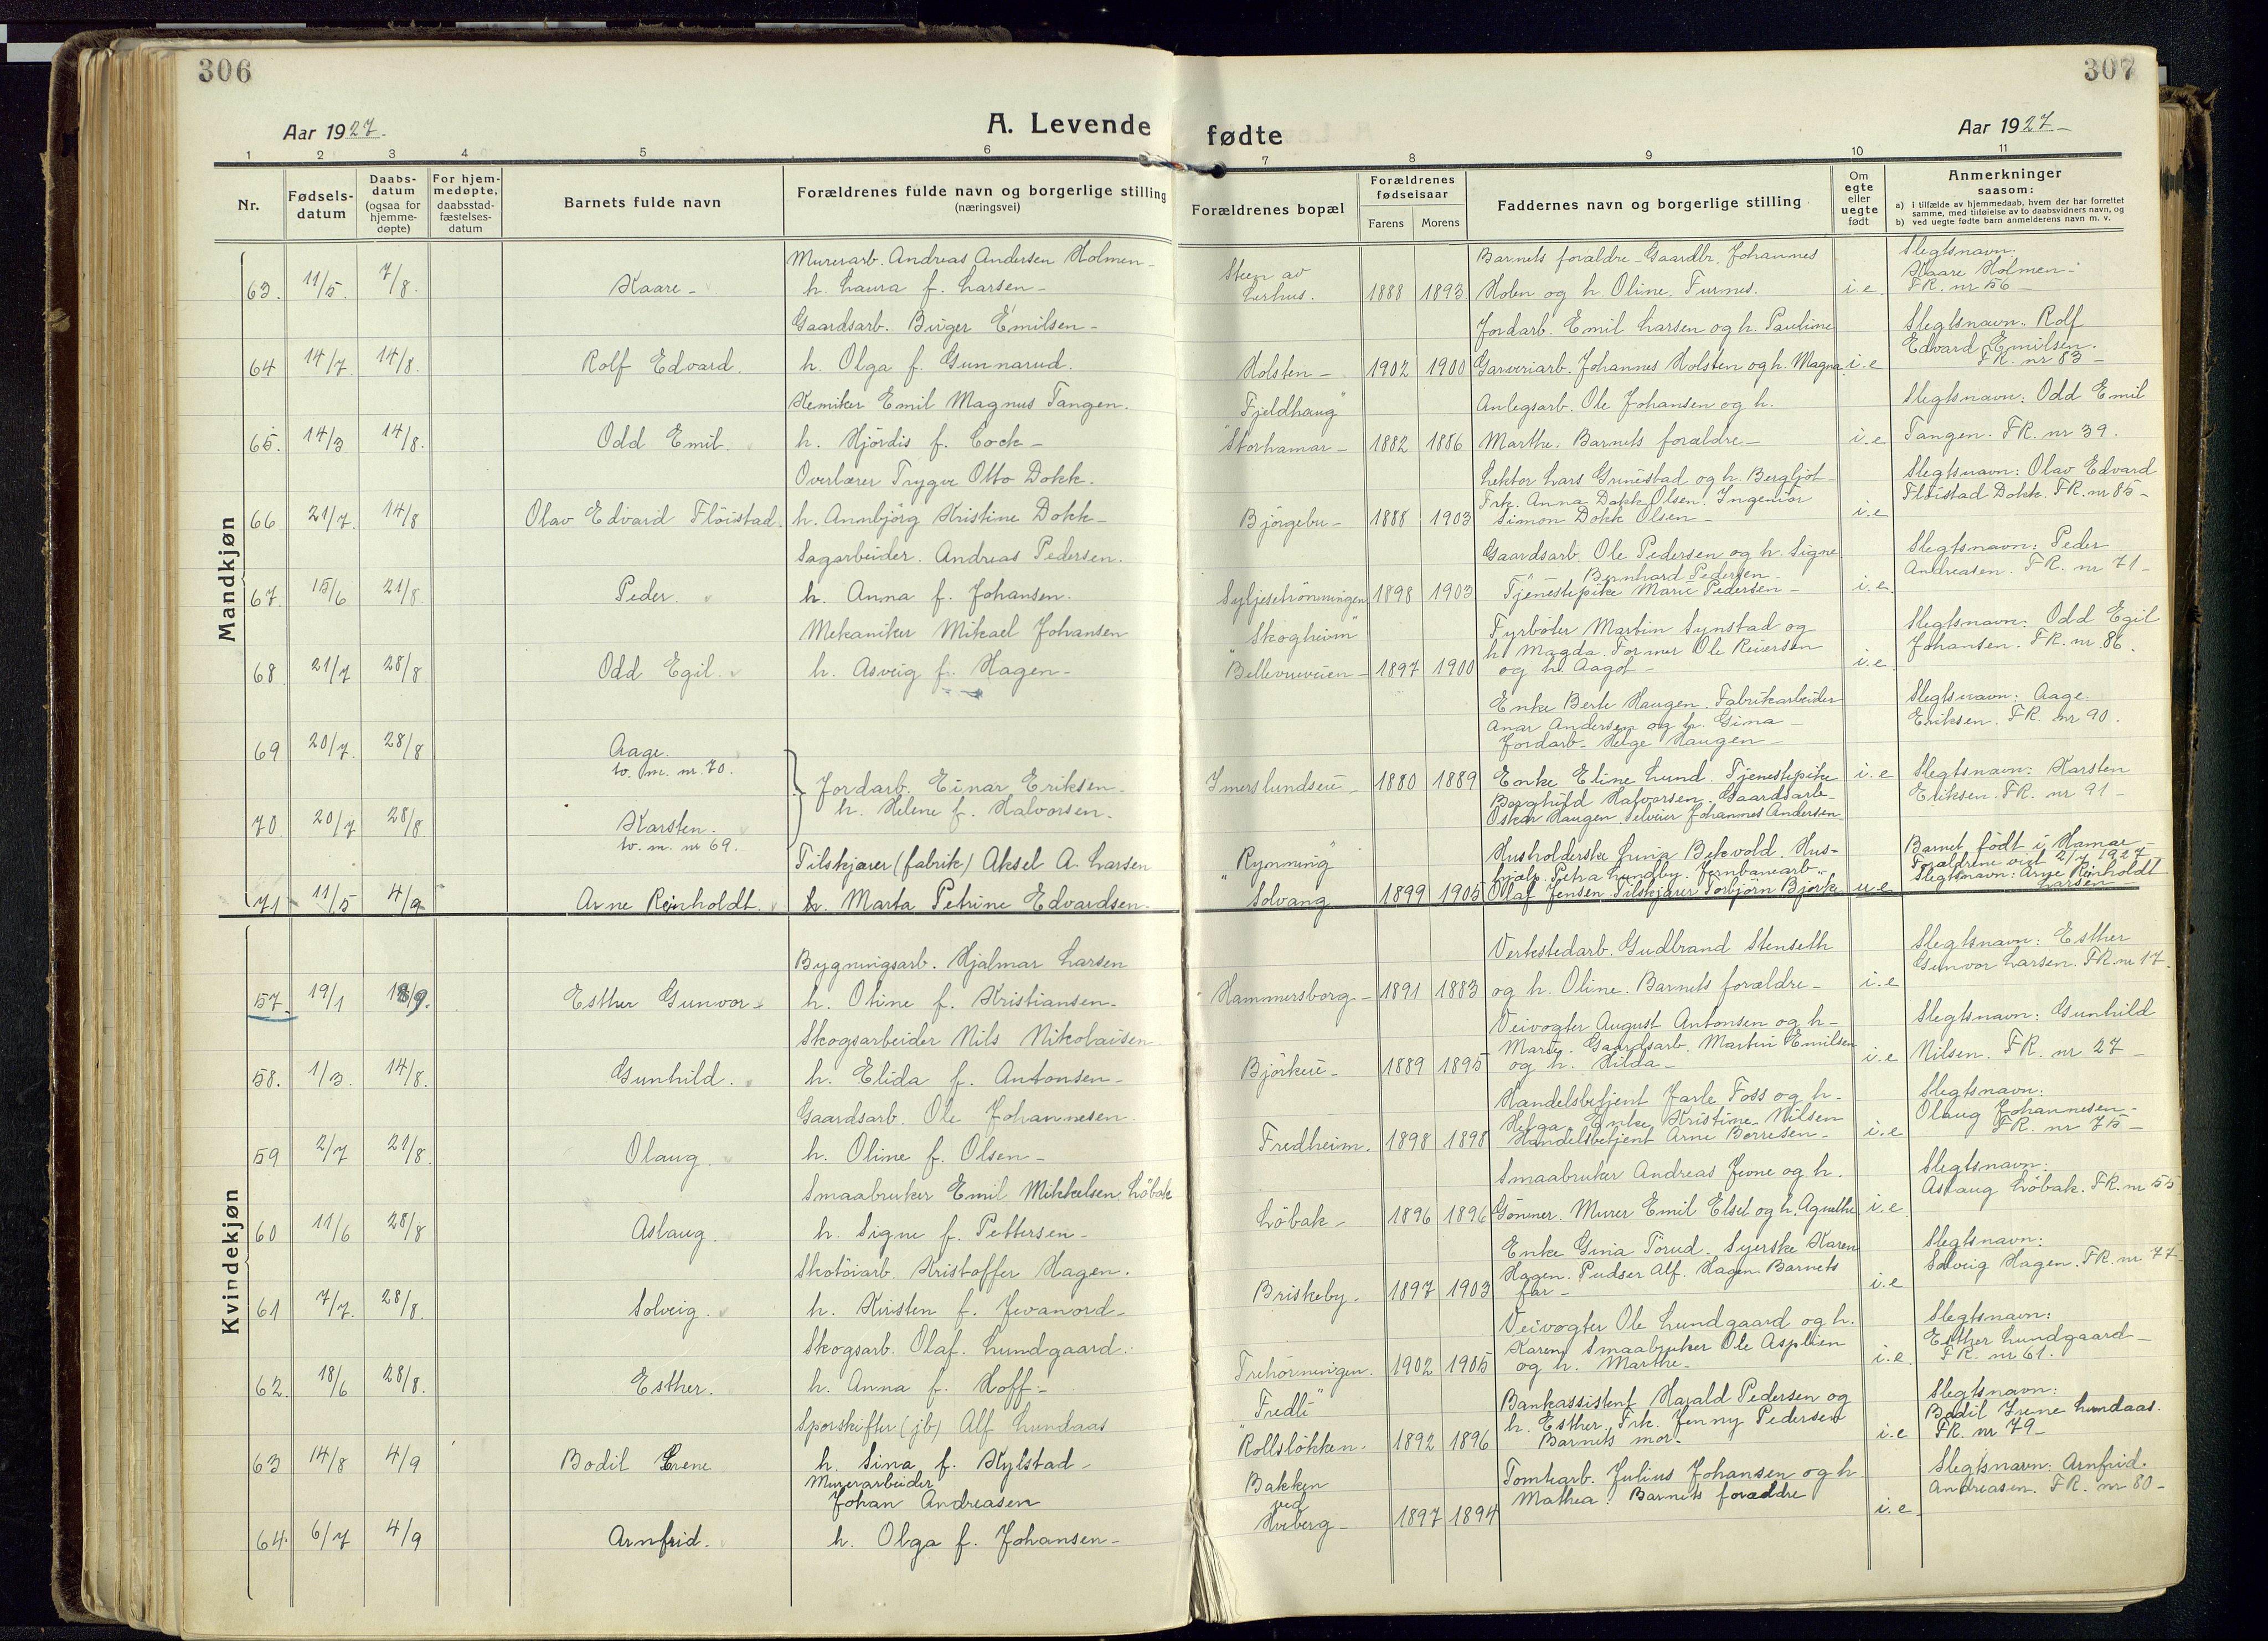 306
307
Aar 1927.
A. Levende fødte
Aar 1927
1 2 3 4 5 6 7 8 9 10 11
Nr.
Fødsels-
datum
Daabs-
datum
(ogsaa for
hjemme-
døpte)
For hjem-
medøpte,
daabsstad-
fæstelses-
datum
Barnets fulde navn
Forældrenes fulde navn og borgerlige stilling
(næringsvei)
Forældrenes bopæl
Forældrenes
fødselsaar
Farens Morens
Faddernes navn og borgerlige stilling
Om
egte
eller
uegte
født
Anmerkninger
saasom:
a) i tilfælde av hjemmedaab, hvem der har forrettet
samme, med tilføielse av to daabsvidners navn, og
b) ved uegte fødte barn anmelderens navn m. v.
Mandkjøn
63. 11/5. 7/8. Kaare
Murerarb. Andreas Andersen Holmen
h. Laura f. Larsen
Steen av
Lerhus. 1888 1893
Barnets forældre Gaardbr. Johannes
Holen og h. Oline Furnes. i.e.
Slegtsnavn:
Kaare Holmen
FR. nr 56
64 14/7. 14/8. Rolf Edvard.
Gaardsarb. Birger Emilsen
h. Olga f. Gunnarud.
Holsten 1902 1900
Jordarb. Emil Larsen og h. Pauline
Garveriarb. Johannes Holsten og h. Magna. i.e
Slegtsnavn: Rolf
Edvard Emilsen.
FR. nr 83
65. 14/3 14/8. Odd Emil.
Kemiker Emil Magnus Tangen.
h. Hjördis f. Cock
"Fjeldhaug"
Storhamar 1882 1886
Anlegsarb. Ole Johansen og h.
Marthe. Barnets forældre i.e
Slegtsnavn: Odd Emil
Tangen. FR. nr 39.
66 21/7. 14/8 Olav Edvard Flöistad.
Overlærer Trygve Otto Dokk.
h. Annbjörg Kristine Dokk
Björgebu 1888 1903
Lektor Lars Grinestad og h. Bergljot
Frk. Anna Dokk Olsen. Ingeniör
Simon Dokk Olsen i.e
Slegtsnavn: Olav Edvard
Flöistad Dokk. FR. nr 85
67. 15/6 21/8. Peder.
Sagarbeider. Andreas Pedersen.
h. Anna f. Johansen.
Syljesetrönningen 1898 1903
Gaardsarb. Ole Pedersen og h. Signe
Bernhard Pedersen
Tjenestepike Marie Pedersen i.e.
Slegtsnavn: Peder
Andreasen. FR. nr 71
68 21/7 28/8. Odd Egil.
Mekaniker Mikael Johansen
h. Asveig f. Hagen
"Skogheim"
Bellevueveien 1897 1900
Fyrböter Martin Synstad og
h. Magda. Former Ole Reiersen
og h. Aagot i.e.
Slegtsnavn: Odd Egil
Johansen. FR. nr 86.
69 20/7. 28/8 Aage.
tv. m. nr. 70.
Jordarb. Einar Eriksen.
h. Helene f. Halvorsen.
Imerslundseie 1880 1889
Enke Berte Haugen. Fabrikarbeider
Anar Andersen og h. Gina
Jordarb. Helge Haugen
Slegtsnavn: Aage
Eriksen. FR. nr 90.
70. 20/7 28/8 Karsten.
tv. m. nr 69.
Enke Eline Lund. Tjenestepike i.e
Borghild Halvorsen. Gaardsarb
Oskar Haugen. Selveier Johannes Andersen
Slegtsnavn: Karsten
Eriksen. FR. nr 91
71 11/5 4/9 Arne Reinholdt.
Tilskjærer (fabrik) Aksel A. Larsen
h. Marta Petrine Edvardsen.
"Rynning"
Solvang 1899 1905
Husholderske Lina Bekvold. Hus-
hjælp Petra Lundby. Jernbanearb.
Olaf Jensen Tilskjærer Torbjörn Bjerke u.e
Barnet födt i Hamar
Forældrene viet 2/7 1927
Slegtsnavn: Arne Reinholdt
Larsen
Kvindekjøn
57. 19/1 18/9. Esther Gunvor
Bygningsarb. Hjalmar Larsen
h. Oline f. Kristiansen.
Hammersborg 1891 1883
Verkstedarb. Gudbrand Stenseth
og h. Oline. Barnets forældre i.e
Slegtsnavn: Esther
Gunvor Larsen. FR. nr 17.
58. 1/3. 14/8. Gunhild.
Skogsarbeider Nils Nikolaisen
h. Elida f. Antonsen
Björkeie 1889 1895
Veivogter August Antonsen og h
Marie. Gaardsarb. Martin Emilsen
og h. Hilda i.e
Slegtsnavn: Gunhild
Nilsen. FR. nr 27
59 2/7 21/8. Olaug.
Gaardsarb. Ole Johannesen.
h. Oline f. Olsen
Fredheim. 1898 1898
Handelsbetjent Jarle Foss og h
Helga. Enke Kristine Nilsen
Handelsbetjent Arne Börresen i.e
Slegtsnavn:
Olaug Johannesen
FR. nr 75
60 11/6 28/8 Aslaug.
Smaabruker Emil Mikkelsen Löbak
h. Signe f. Pettersen
Löbak 1896 1896
Smaabruker Andreas Jevne og h.
Gönner. Murer Emil Elset og h. Agnethe i.e.
Slegtsnavn:
Aslaug Löbak. FR. nr 55
61 7/7. 28/8. Solveig.
Skotöiarb. Kristoffer Hagen.
h. Kirsten f. Jevanord
Briskeby. 1897 1903
Enke Gina Torud. Syerske Karen
Hagen. Pudser Alf. Hagen. Barnets
far i.e
Slegtsnavn:
Solveig Hagen. FR. nr 77
62. 18/6 28/8. Esther.
Skogsarb. Olaf. Lundgaard.
h. Anna f. Hoff
Trehörningen. 1902 1905
Veivogter Ole Lundgaard og h.
Karen. Smaabruker Ole Asplien
og h. Marthe i.e.
Slegtsnavn:
Esther Lundgaard
FR. nr 61.
63 14/8 4/9 Bodil Irene
Sporskifter (jb) Alf Lundaas
h. Sina f. Kylstad
"Fredli"
Rollslökken. 1892 1896
Bankassistent Harald Pedersen og
h. Esther. Frk. Jenny Pedersen
Barnets mor. i.e
Slegtsnavn:
Bodil Irene Lundaas.
FR. nr 79
64. 6/7 4/9 Arnfrid.
Murerarbeider
Johan Andreasen
h. Olga f. Johansen
Bakken
ved
Hveberg 1897 1894
Tomtearb. Julius Johansen og h
Mathea. Barnets forældre i.e.
Slegtsnavn: Arnfrid.
Andreasen. FR. nr 80